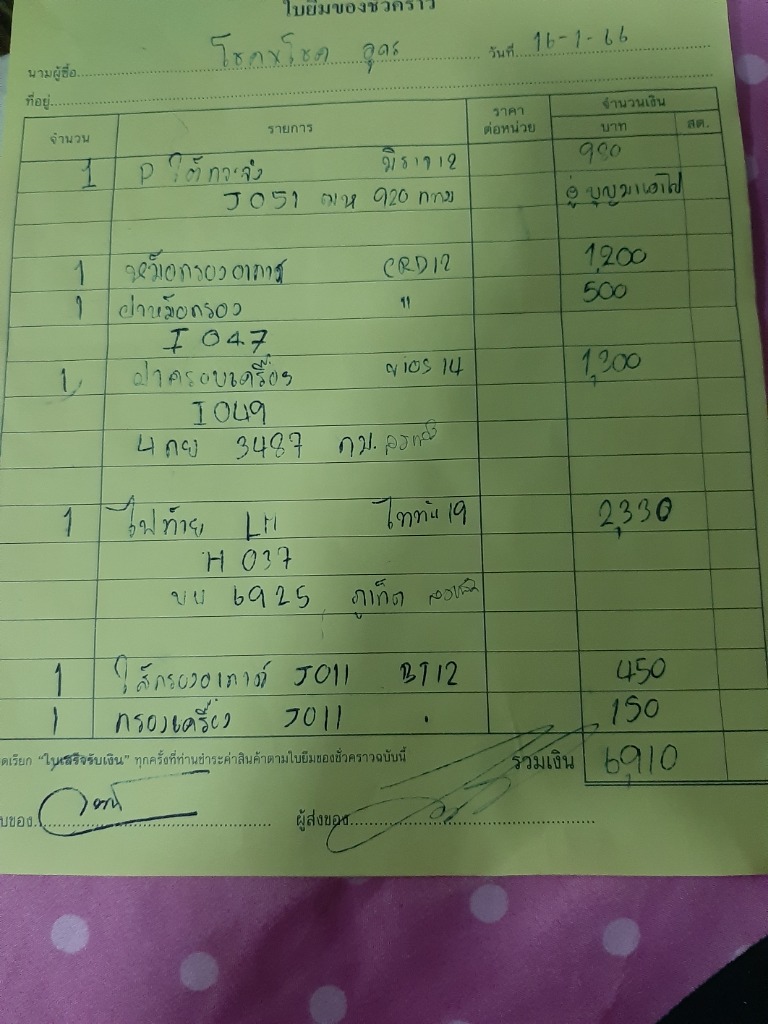 ใบยืมของชั่วคราว
นามผู้ซื้อ โชคชโชค อุดร วันที่ 16-1-66
ที่อยู่
จำนวน รายการ ราคาต่อหน่วย จำนวนเงิน
บาท สต.
1 P ใต้กระจัง มิราท12 980
J051 920 กทม อู่ บุญมาเอาไป
1 หม้อกรองอากาศ CRD12 1,200
1 ฝาหม้อกรอง " 500
I 047
1 ฝาครอบเครื่อง vios 14 1,300
I 049
4 กย 3487 กม.
1 ไฟท้าย LH ไททัน 19 2,330
H 037
บบ 6925 ภูเก็ต
1 ไส้กรองอากาศ J011 BT12 450
1 กรองเครื่อง J011 150
ดเรียก "ใบเสร็จรับเงิน" ทุกครั้งที่ท่านชำระค่าสินค้าตามใบยืมของชั่วคราวฉบับนี้ รวมเงิน 6,910
บของ ผู้ส่งของ